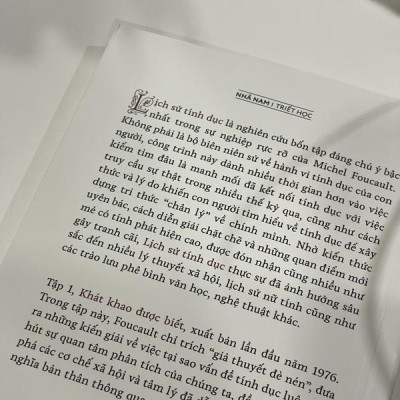 NHÃ NAM | TRIẾT HỌC
Lịch sử tính dục là nghiên cứu bốn tập đáng chú ý bậc
nhất trong sự nghiệp rực rỡ của Michel Foucault.
Không phải là bộ biên niên sử về hành vi tính dục của con
người, công trình này dành nhiều thời gian hơn vào việc
kiếm tìm đâu là manh mối đã kết nối tính dục với việc
truy cầu sự thật trong nhiều thế kỷ qua, cũng như cách
thức và lý do khiến con người tìm hiểu về tính dục để xây
dựng tri thức "chân lý" về chính mình. Nhờ kiến thức
uyên bác, cách diễn giải chặt chẽ và những quan điểm mới
mẻ có tính phát hiện cao, được đón nhận cũng nhiều như
gây tranh cãi, Lịch sử tính dục thực sự đã ảnh hưởng sâu
sắc đến nhiều lý thuyết xã hội, lịch sử nữ tính cũng như
các trào lưu phê bình văn học, nghệ thuật khác.
Tập 1, Khát khao được biết, xuất bản lần đầu năm 1976.
Trong tập này, Foucault chỉ trích "giả thuyết đè nén", đưa
ra những kiến giải về việc tại sao vấn đề tính dục luôn
hút sự quan tâm phân tích của chúng ta,
phá các cơ chế xã hội và tâm lý đã
nghĩa bản thân thông qua